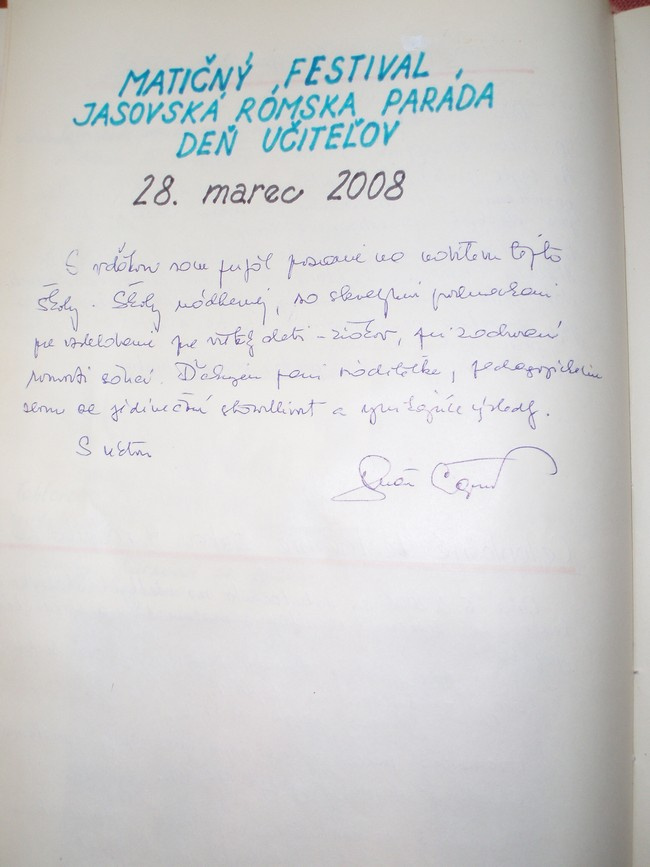 MATIČNÝ FESTIVAL
JASOVSKÁ RÓMSKA PARÁDA
DEŇ UČITEĽOV
28. marec 2008
S vďakou som prijal pozvanie na návštevu tejto
školy. Školy nádhernej, so skvelými podmienkami
pre vzdelávanie pre všetky deti - žiakov, pri zachovaní
. Ďakujem pani riaditeľke, pedagogickému
za jedinečnú starostlivosť a vynikajúce výsledky.
S úctou